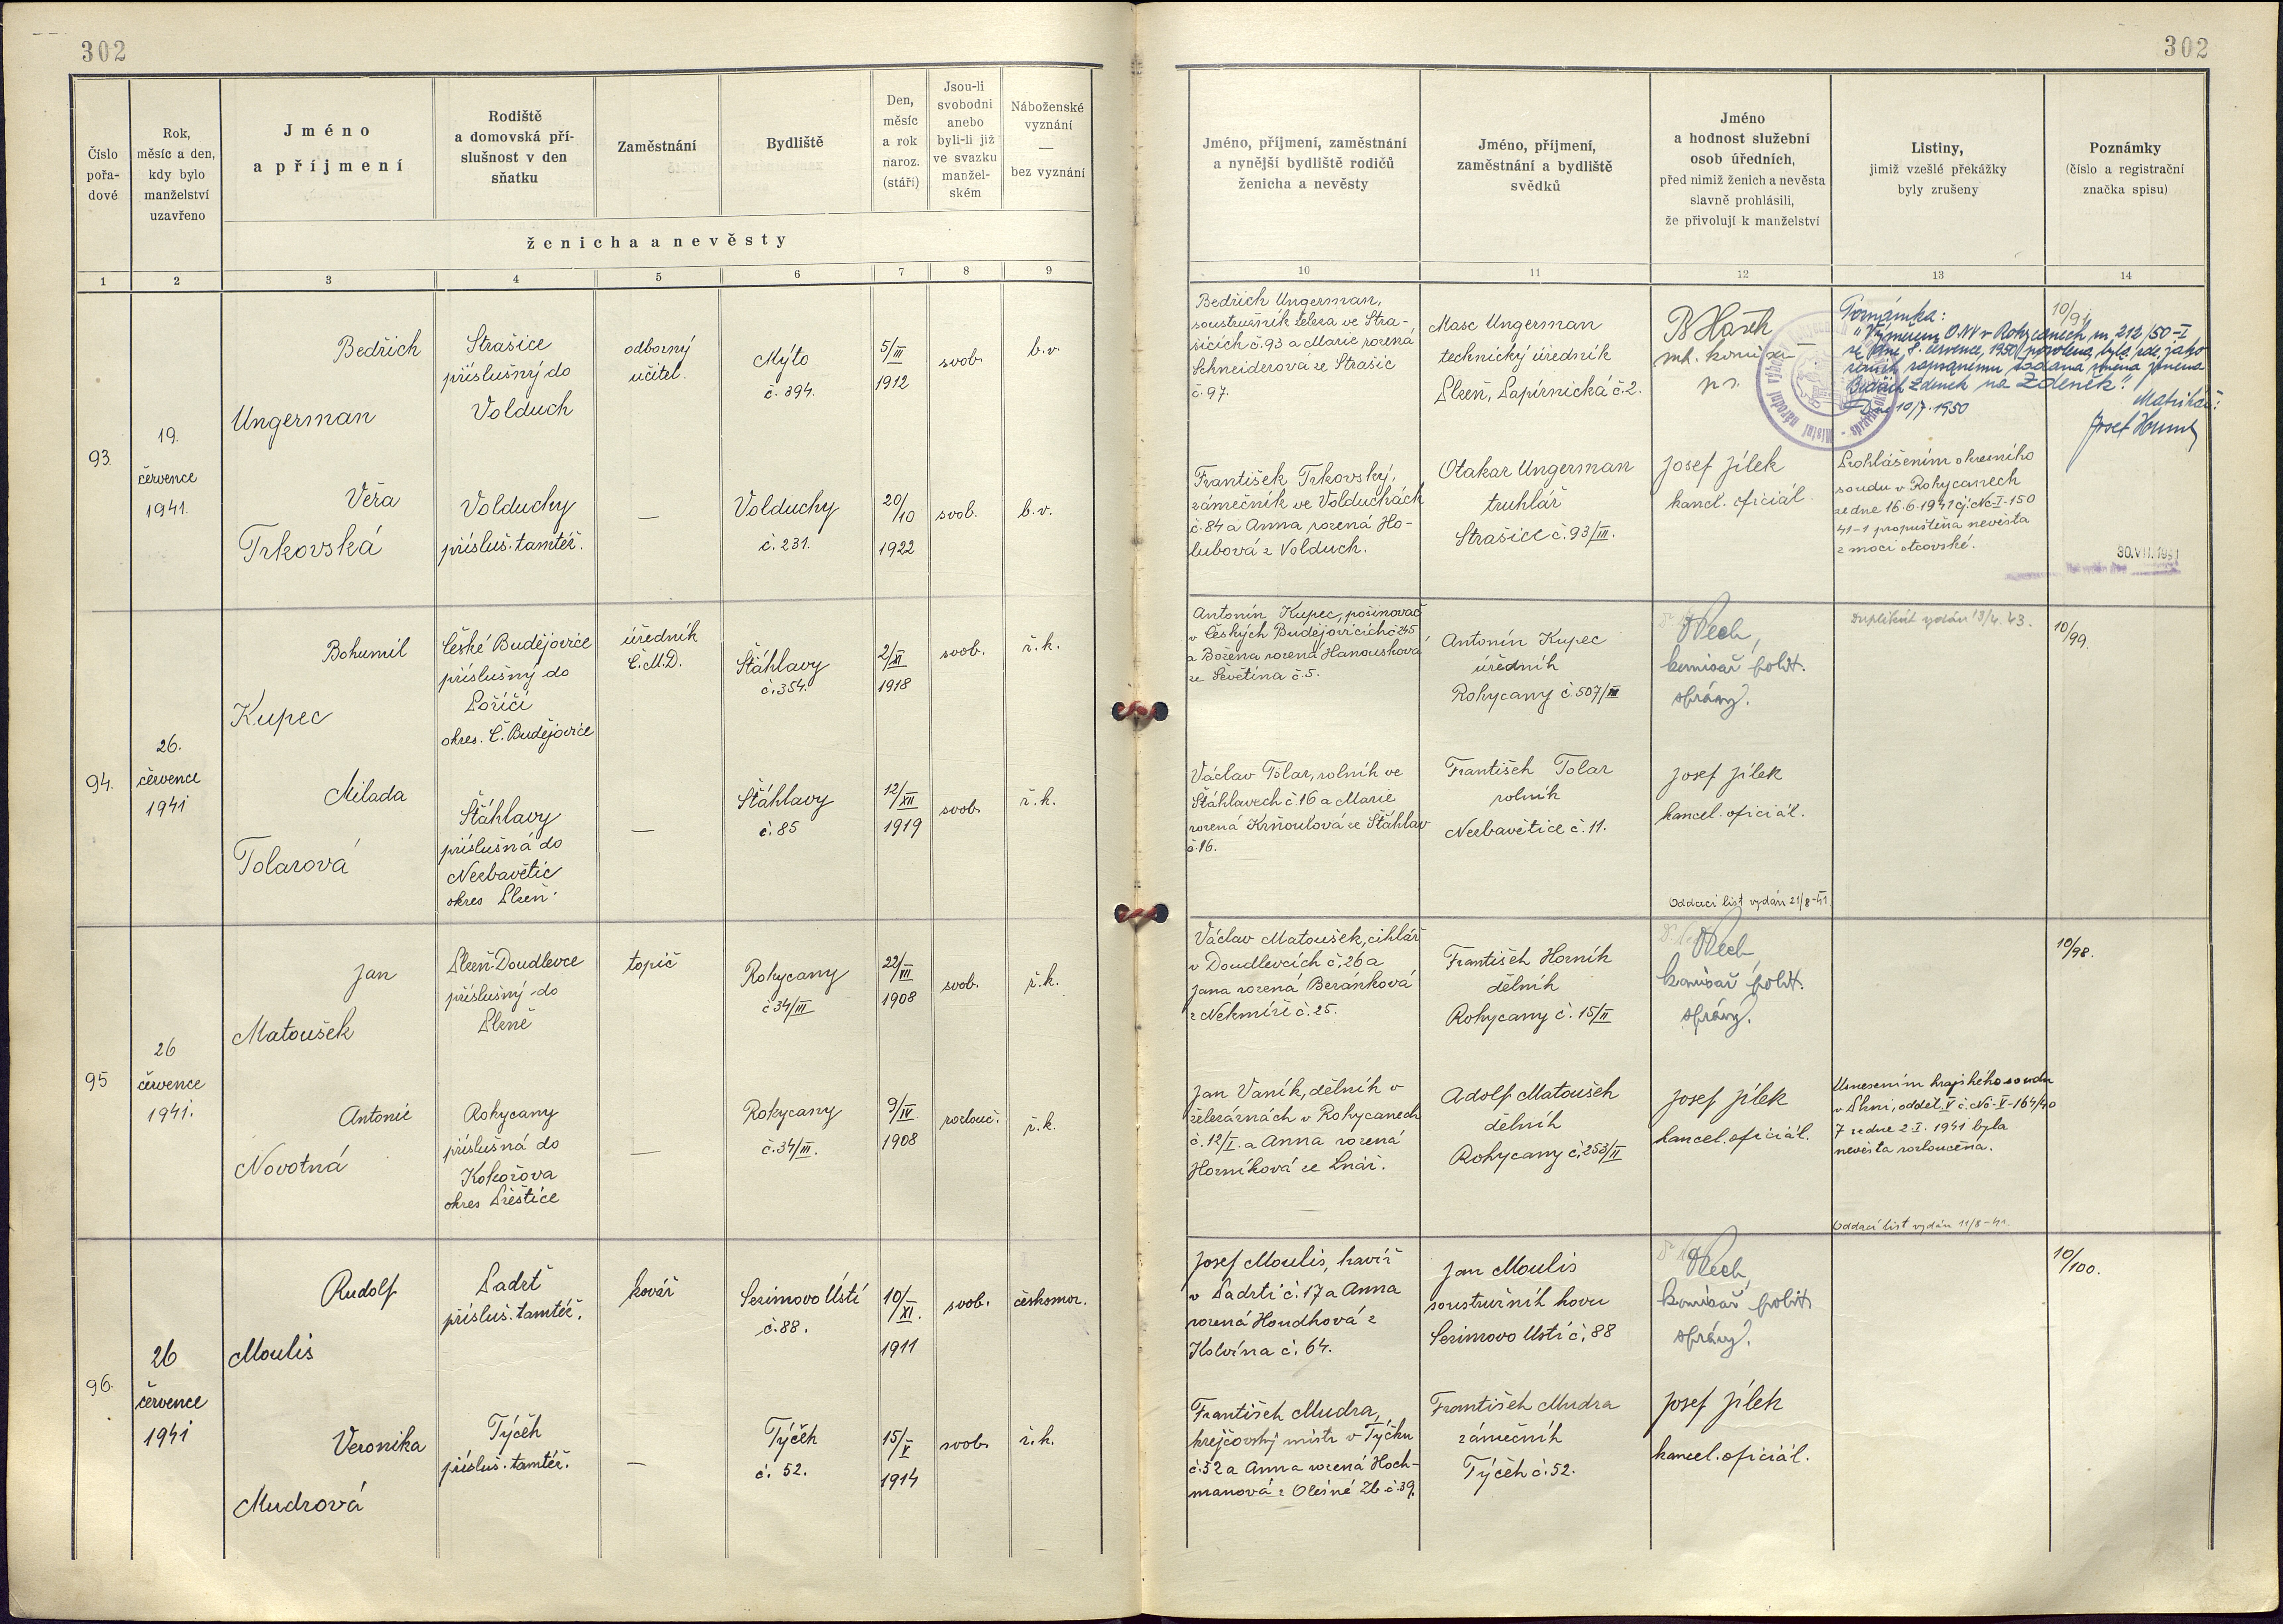 302
302
Číslo
pořa-
dové
Rok,
měsíc a den,
kdy bylo
manželství
uzavřeno
Jméno
a příjmení
Rodiště
a domovská pří-
slušnost v den
sňatku
Zaměstnání
Bydliště
Den,
měsíc
a rok
naroz.
(stáří)
Jsou-li
svobodni
anebo
byli-li již
ve svazku
manžel-
ském
Náboženské
vyznání
—
bez vyznání
ženicha a nevěsty
Jméno, příjmení, zaměstnání
a nynější bydliště rodičů
ženicha a nevěsty
Jméno, příjmení,
zaměstnání a bydliště
svědků
Jméno
a hodnost služební
osob úředních,
před nimiž ženich a nevěsta
slavně prohlásili,
že přivolují k manželství
Listiny,
jimiž vzešlé překážky
byly zrušeny
Poznámky
(číslo a registrační
značka spisu)
1 2 3 4 5 6 7 8 9 10 11 12 13 14
93.
19.
července
1941.
Bedřich
Ungerman
Strašice
příslušný do
Volduch
odborný
učitel.
Mýto
č. 394.
5/III
1912
svob.
b.v.
Bedřich Ungerman,
soustružník železa ve Stra-
šicích č.93 a Marie rozená
Schneiderová ze Strašic
č.97.
Masc Ungerman
technický úředník
Plzeň, Papírnická č.2.
Poznámka:
"Výměrem O.NV v Rokycanech, zn. 212/50-I
ze dne 7. července, 1950 povolena byla zde jako
ženich zapsanému žádaná změna jména
Bedřich Zdeněk na Zdeněk."
Dne 10/7. 1950
Matrikář:
10/91
Věra
Trkovská
Volduchy
přísluš. tamtéž.
—
Volduchy
č. 231.
20/10
1922
svob.
b.v.
František Trkovský,
zámečník ve Volduchách
č.84 a Anna rozená Ho-
lubová z Volduch.
Otakar Ungerman
truhlář
Strašice č.93/III.
Josef Jílek
kancl. oficiál.
Prohlášením okresního
soudu v Rokycanech
ze dne 16.6.1941 čj. Nc-I-150
41-1 propuštěna nevěsta
z moci otcovské.
30.VII.1941
94.
26.
července
1941
Bohumil
Kupec
České Budějovice
příslušný do
Poříčí
okres. Č. Budějovice
úředník
Č.M.D.
Šťáhlavy
č.354.
2/XI
1918
svob.
ř.k.
Antonín Kupec, pořinovač
v Českých Budějovicích č.245
a Božena rozená Hanousková
ze Ševětína č.5.
Antonín Kupec
úředník
Rokycany č.507/III
komisař polit.
správy.
Duplikát vydán 13/4.43.
10/99.
Milada
Tolarová
Šťáhlavy
příslušná do
Nezbavětic
okres Plzeň.
—
Šťáhlavy
č.85
12/XII
1919
svob.
ř.k.
Václav Tolar, rolník ve
Šťáhlavech č.16 a Marie
rozená Krňoulová ze Šťáhlav
č.16.
František Tolar
rolník
Nezbavětice č.11.
Josef Jílek
kancel. oficiál.
Oddací list vydán 21/8-41
95
26
července
1941.
Jan
Matoušek
Plzeň-Doudlevce
příslušný do
Plzně
topič
Rokycany
č34/III
22/VII
1908
svob.
ř.k.
Václav Matoušek, cihlář
v Doudlevcích č.26 a
Jana rozená Beránková
z Nekmíře č.25.
František Horník
dělník
Rokycany č. 15/II
komisař polit.
správy.
10/98.
Antonie
Novotná
Rokycany
příslušná do
Kokořova
okres Přeštice
—
Rokycany
č.34/III.
9/IV
1908
rozlouč.
ř.k.
Jan Vaník, dělník v
železárnách v Rokycanech
č.12/I. a Anna rozená
Horníková ze Lnář.
Adolf Matoušek
dělník
Rokycany č.253/II
Josef Jílek
kancel. oficiál.
Usnesením krajského soudu
v Plzni, odděl. V č. Nc-V-164/40
7 ze dne 2.I. 1941 byla
nevěsta rozloučena.
Oddací list vydán 11/8-41.
96.
26
července
1941
Rudolf
Moulis
Padrť
přísluš. tamtéž.
kovář
Sezimovo Ústí
č.88.
10/XI.
1911
svob.
českomor.
Josef Moulis, havíř
v Padrti č.17 a Anna
rozená Houdková z
Kolvína č.64.
Jan Moulis
soustružník kovu
Sezimovo Ústí č.88
komisař polit.
správy.
10/100.
Veronika
Mudrová
Týček
přísluš. tamtéž.
—
Týček
č. 52.
15/V
1914
svob.
ř.k.
František Mudra,
krejčovský mistr v Týčku
č.52 a Anna rozená Hoch-
manová z Olešné Zb. č.39.
František Mudra
zámečník
Týček č.52.
Josef Jílek
kancel. oficiál.